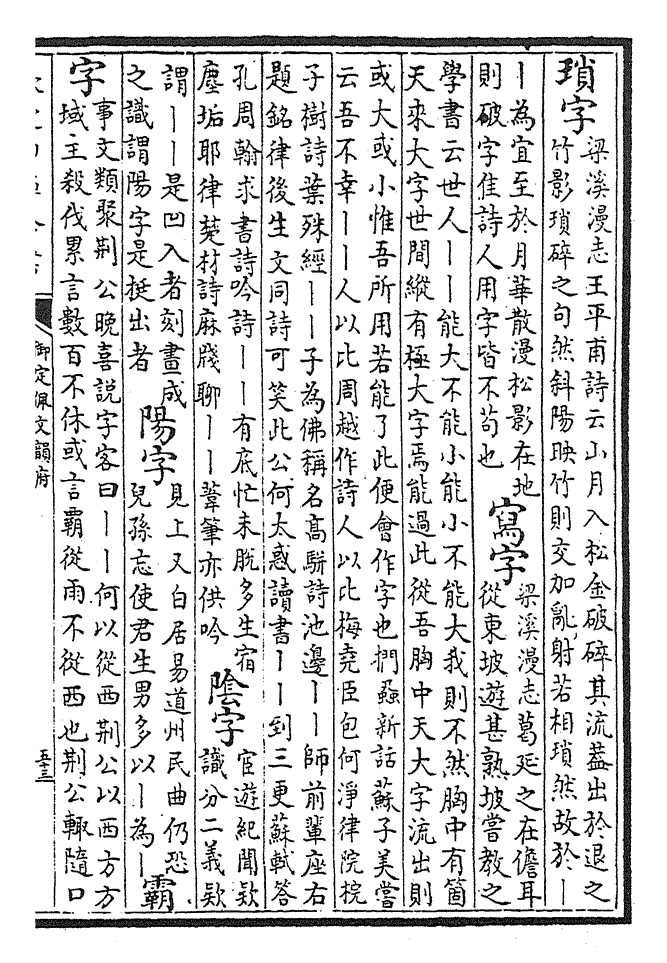 瑣字
梁溪漫志王平甫詩云山月入松金破碎其流葢出於退之
竹影瑣碎之句然斜陽映竹則交加亂射若相瑣然故於丨
丨為宜至於月華散漫松影在地
則破字佳詩人用字皆不苟也
寫字
梁溪漫志葛延之在儋耳
從東坡遊甚熟坡嘗教之
學書云世人丨丨能大不能小能小不能大我則不然胸中有箇
天來大字世間縱有極大字焉能過此從吾胸中天大字流出則
或大或小惟吾所用若能了此便會作字也捫蝨新話蘇子美嘗
云吾不幸丨丨人以比周越作詩人以比梅堯臣包何淨律院梡
子樹詩葉殊經丨丨子為佛稱名高駢詩池邊丨丨師前輩座右
題銘律後生文同詩可笑此公何太惑讀書丨丨到三更蘇軾答
孔周翰求書詩吟詩丨丨有底忙未脫多生宿
塵垢耶律楚材詩麻牋聊丨丨葦筆亦供吟
陰字
宦遊紀聞欵
識分二義欵
謂丨丨是凹入者刻畫成
之識謂陽字是挺出者
陽字
見上又白居易道州民曲仍恐
兒孫忘使君生男多以丨為丨
霸
字
事文類聚荆公晚喜説字客曰丨丨何以從西荆公以西方方
域主殺伐累言數百不休或言霸從雨不從西也荆公輙隨口
御定佩文韻府
五十三